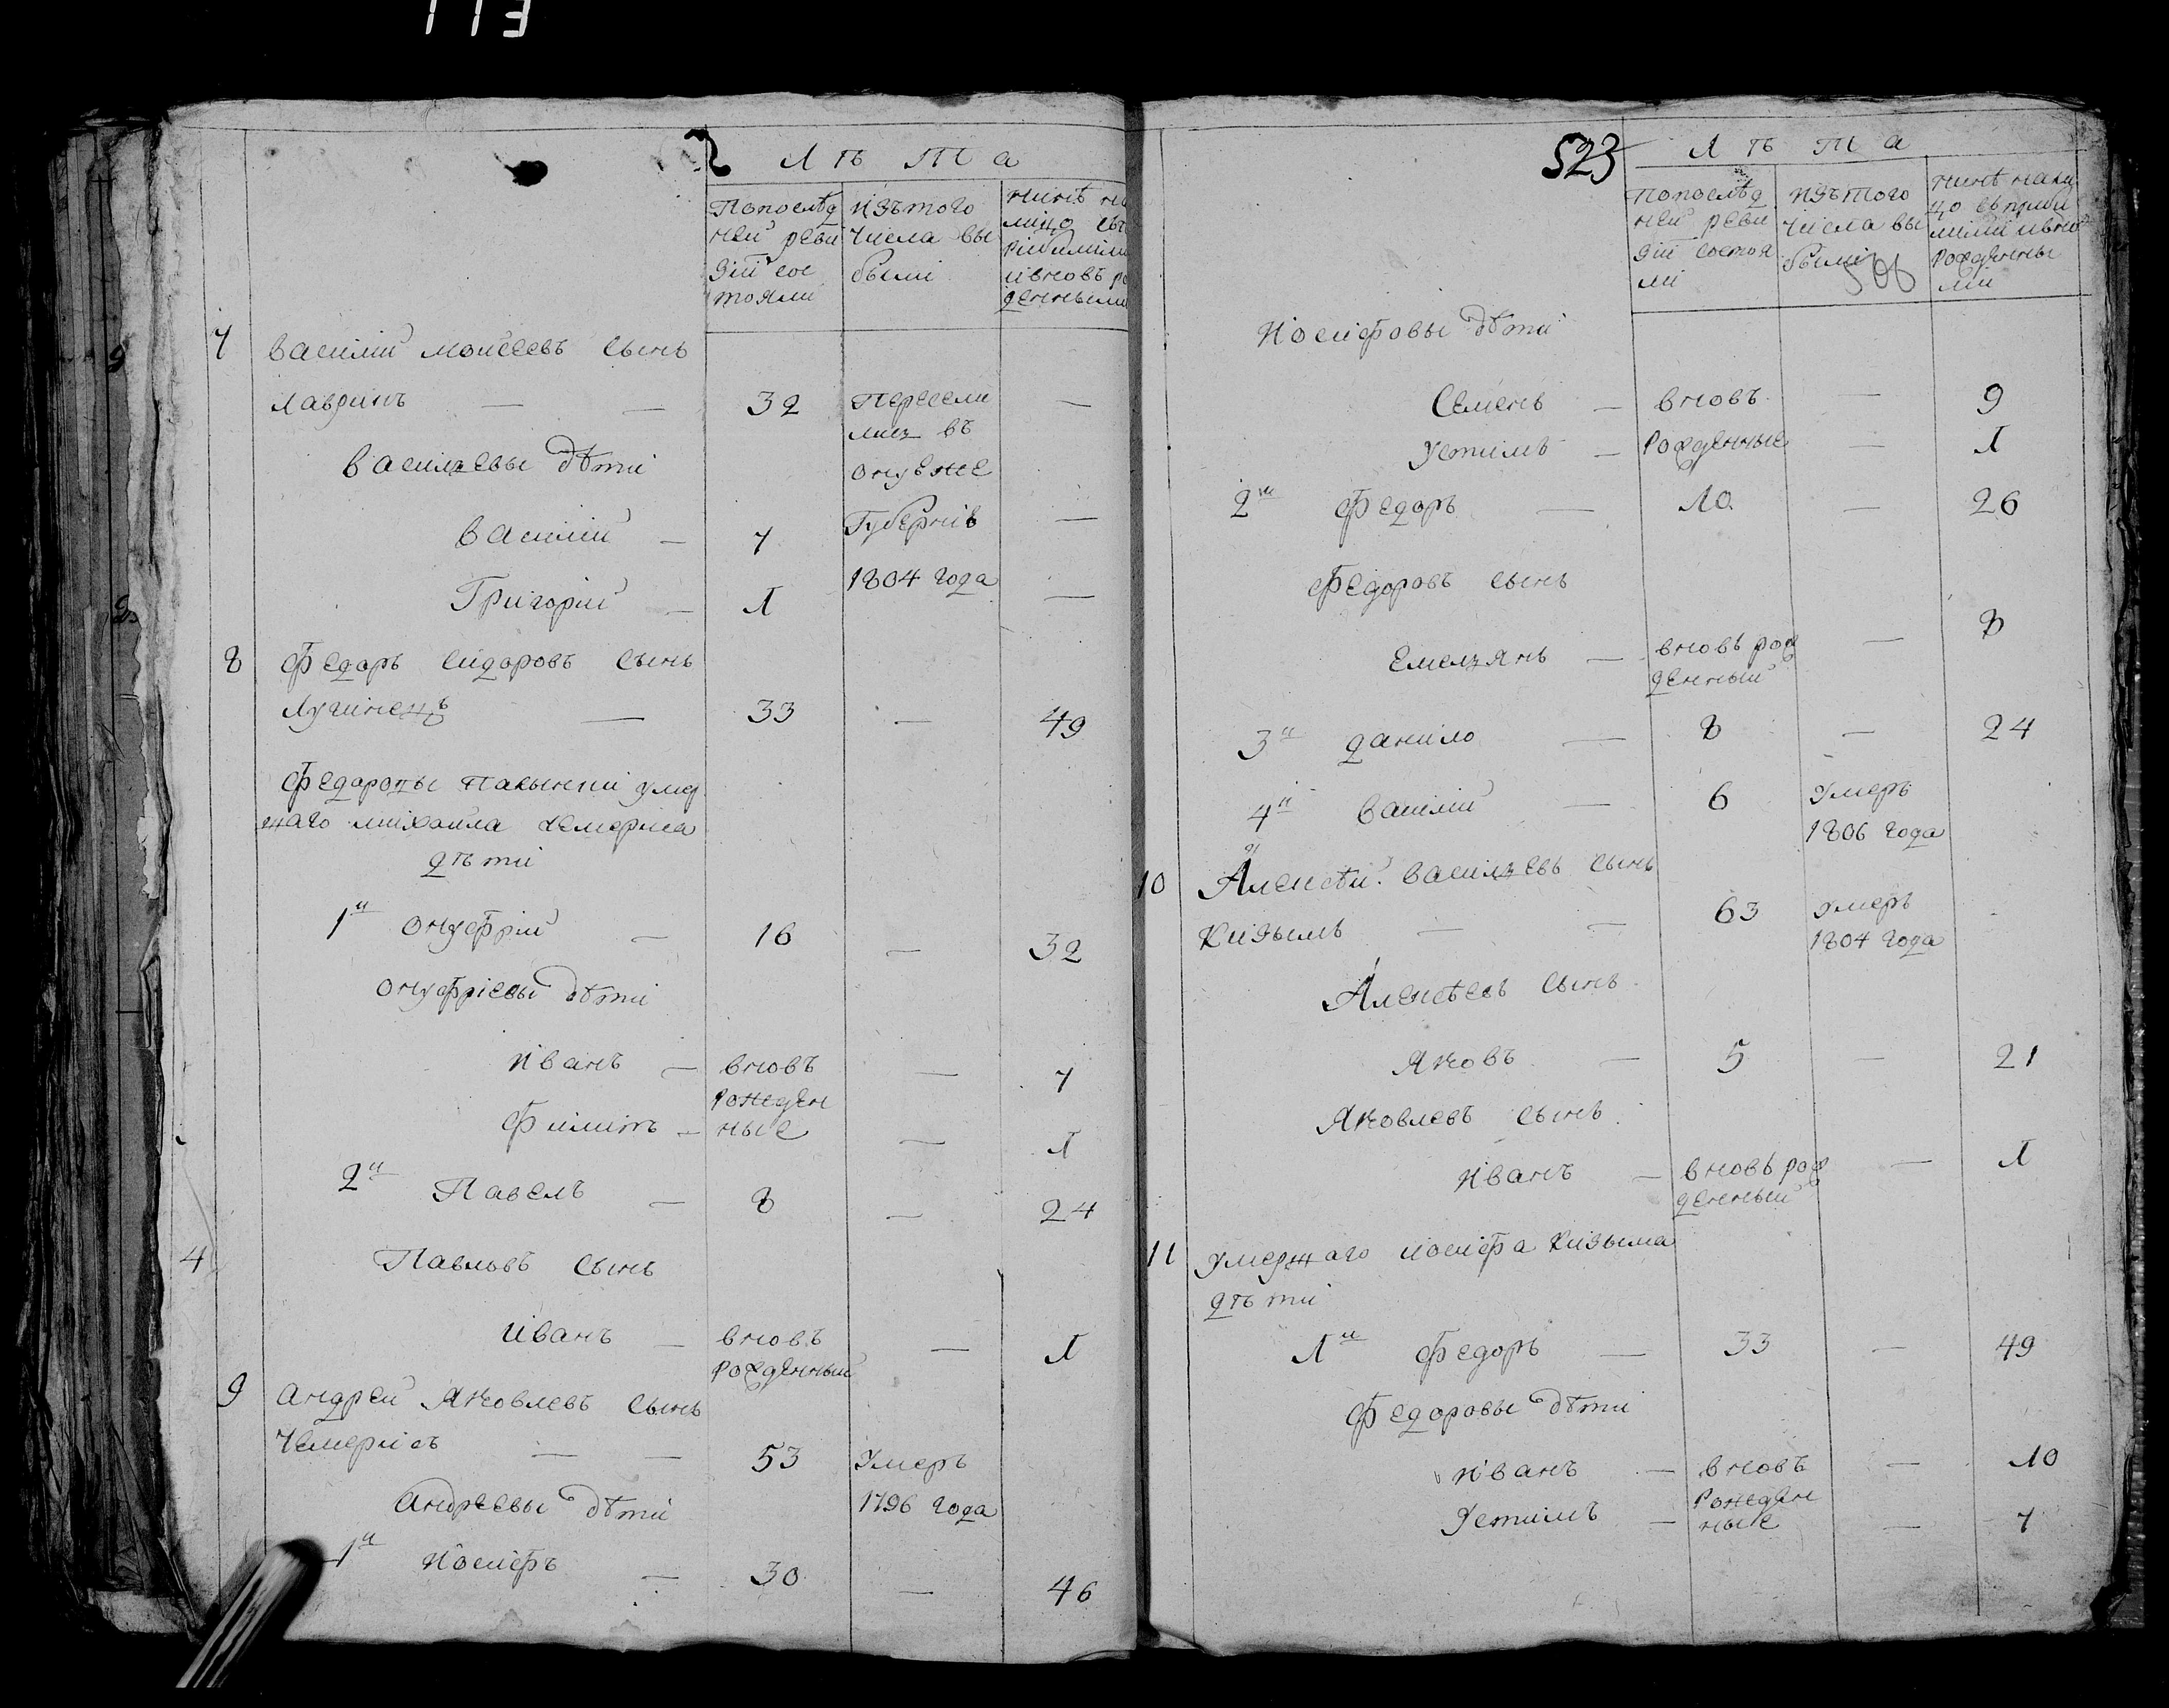 113
Лѣта
Попослѣд
ней реви
зіи сос
тояли
Изътого
числа вы
были
Нинѣ на
лицо съ
и вновь ро
денными
7 Василий Моисеевъ сынъ
Лавринъ — — 32 Пересели —
лиз въ
Василзевы дѣти
онуЕже
Василий — 7 Губерніѣ —
Григорий — 1 1804 года —
8 Федоръ Сидоровъ сынъ
Лучинецъ — 33 — 49
умер
шаго Михаила Чемериса
дѣти
1й Онуфрій — 16 — 32
Онуфріевы дѣти
Иванъ — вновь — 7
рожден
Филипъ — ные — 1
2й Павелъ — 8 — 24
4
Павловъ сынъ
Иванъ — вновь — 1
рожденный
9 Андрей Яковлевъ сынъ
Чемерисъ — — 53 Умеръ
Андреевы дѣти 1796 года
1й Иосифъ — 30 — 46
523
Лѣта
Попослѣд
ней реви
зіи состоя
ли
Изътого
числа вы
были
506
Нинѣ нали
цо съприб
илими ивно
рожденны
ми
Иосифовы дѣти
Семенъ — вновь — 9
Устимъ — рожденные — 1
2й Федоръ — 10 — 26
Федоровъ сынъ
Емелзянъ — вновь рож — 8
денный
3й Данило — 8 — 24
4й Василий — 6 Умеръ
1806 года
10 Алексѣй Василзевъ сынъ
Кизымъ — — 63 Умеръ
1804 года
Алексѣевъ сынъ
Яковъ — 5 — 21
Яковлевъ сынъ
Иванъ — вновь рож — 1
денный
11 Умершаго Иосифа Кизыма
дѣти
1й Федоръ — 33 — 49
Федоровы дѣти
Иванъ — вновь — 10
рожден
Устимъ — ные — 7